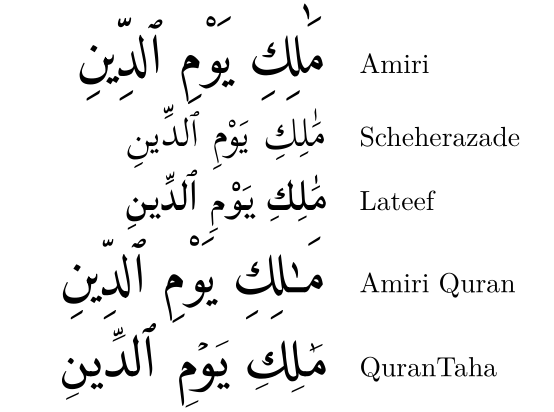 مَٰلِكِ يَوْمِ ٱلدِّينِ Amiri
مَٰلِكِ يَوْمِ ٱلدِّينِ Scheherazade
مَٰلِكِ يَوْمِ ٱلدِّينِ Lateef
مَـٰلِكِ يَوْمِ ٱلدِّينِ Amiri Quran
مَٰلِكِ يَوۡمِ ٱلدِّينِ QuranTaha